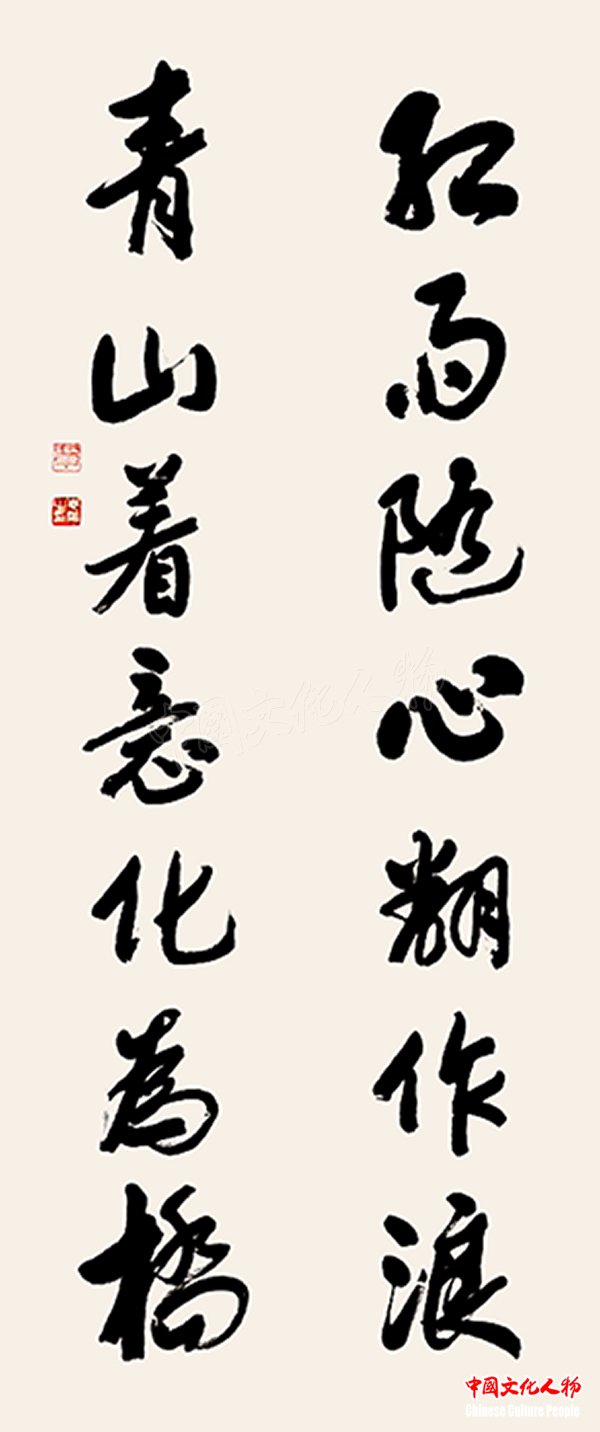 红雨随心翻作浪
青山着意化為橋
中國文化人物
中國文化人物
Chinese Culture People